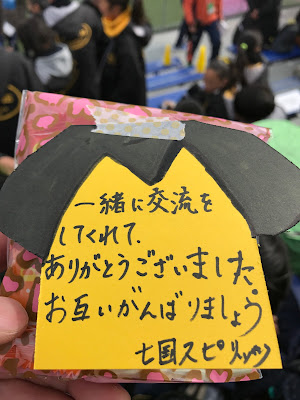 一緒に交流を
してくれて、
ありがとうございました。
お互いがんばりましょう
七国スピリッツ